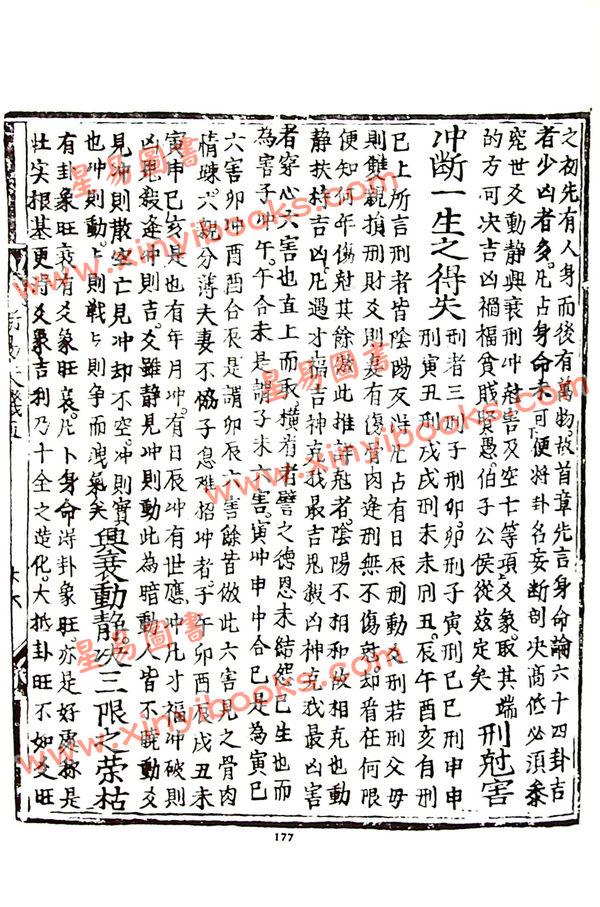 之初先有人身而後有萬物故首章先言身命論六十四卦吉
者少凶者多凡占身命未可便將卦名妄斷剖决高低必須叅
究世爻動靜興衰刑冲尅害及空亡等項爻象取其端
的方可决吉凶禍福貧賎賢愚伯子公侯從兹定矣 刑尅害
冲断一生之得失 刑者三刑子刑卯卯刑子寅刑巳巳刑申申
刑寅丑刑戌戌刑未未刑丑辰午酉亥自刑
已上所言刑者皆陰陽反凡占有日辰刑動爻刑若刑父母
則雙親損刑財爻則妻有傷骨肉逢刑無不傷尅却看在何限
便知何年傷尅其餘倣此推詳尅者陰陽不相和故相克也動
靜扶持吉凶凡遇才福吉神克我最吉鬼殺凶神克我最凶害
者穿心六害也直上而禾横者譬之德恩未結怨已生也而
為害子冲午午合未是謂子未六害寅冲申申合巳是為寅巳
六害卯冲酉酉合辰是謂卯辰六害餘皆倣此六害見之骨肉
情疎六親分薄夫妻不恊子息難招冲者子午卯酉辰戌丑未
寅申巳亥是也有年月冲有日辰冲有世應冲凡才福冲破則
凶鬼殺逢冲則吉爻雖靜見冲則動此為暗動人皆不曉動爻
見冲則散空亡見冲却不空冲則實 興衰動靜决三限之荣枯
也冲則動動則戰戰則争而洩氣矣
有卦象旺衰有爻象旺衰凡卜身命得卦象旺亦是好處不是
壮实根基更得爻象吉利乃十全之造化大抵卦旺不如爻旺
177
星易圖書
www.xinyibooks.com
星易圖書
www.xinyibooks.com
星易圖書
www.xinyibooks.com